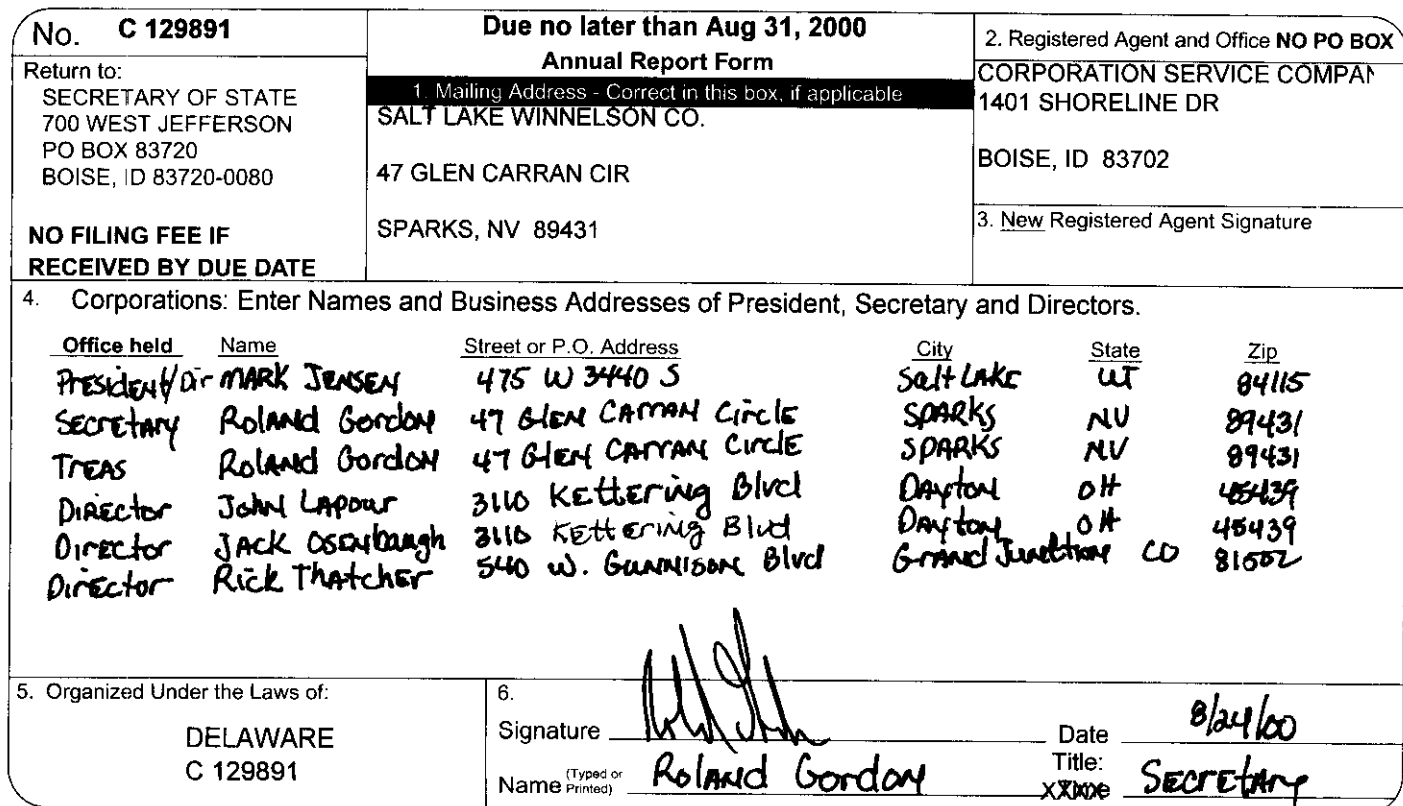 No. C 129891
Return to:
SECRETARY OF STATE
700 WEST JEFFERSON
PO BOX 83720
BOISE, ID 83720-0080
NO FILING FEE IF
RECEIVED BY DUE DATE
Due no later than Aug 31, 2000
Annual Report Form
1. Mailing Address - Correct in this box, if applicable
SALT LAKE WINNELSON CO.
47 GLEN CARRAN CIR
SPARKS, NV 89431
2. Registered Agent and Office NO PO BOX
CORPORATION SERVICE COMPAN
1401 SHORELINE DR
BOISE, ID 83702
3. New Registered Agent Signature
4. Corporations: Enter Names and Business Addresses of President, Secretary and Directors.
Office held Name Street or P.O. Address City State Zip
President/Dir MARK JENSEN 475 W 3440 S Salt LAKE UT 84115
Secretary Roland Gordon 47 Glen Carran Circle SPARKS NV 89431
Treas Roland Gordon 47 Glen Carran Circle SPARKS NV 89431
Director John Lapour 3110 Kettering Blvd Dayton OH 45439
Director JACK Osenbaugh 3110 Kettering Blvd Dayton OH 45439
Director Rick Thatcher 540 W. Gunnison Blvd Grand Junction CO 81502
5. Organized Under the Laws of:
DELAWARE
C 129891
6.
Signature Date 8/24/00
Name (Typed or Printed) Roland Gordon Title: Secretary